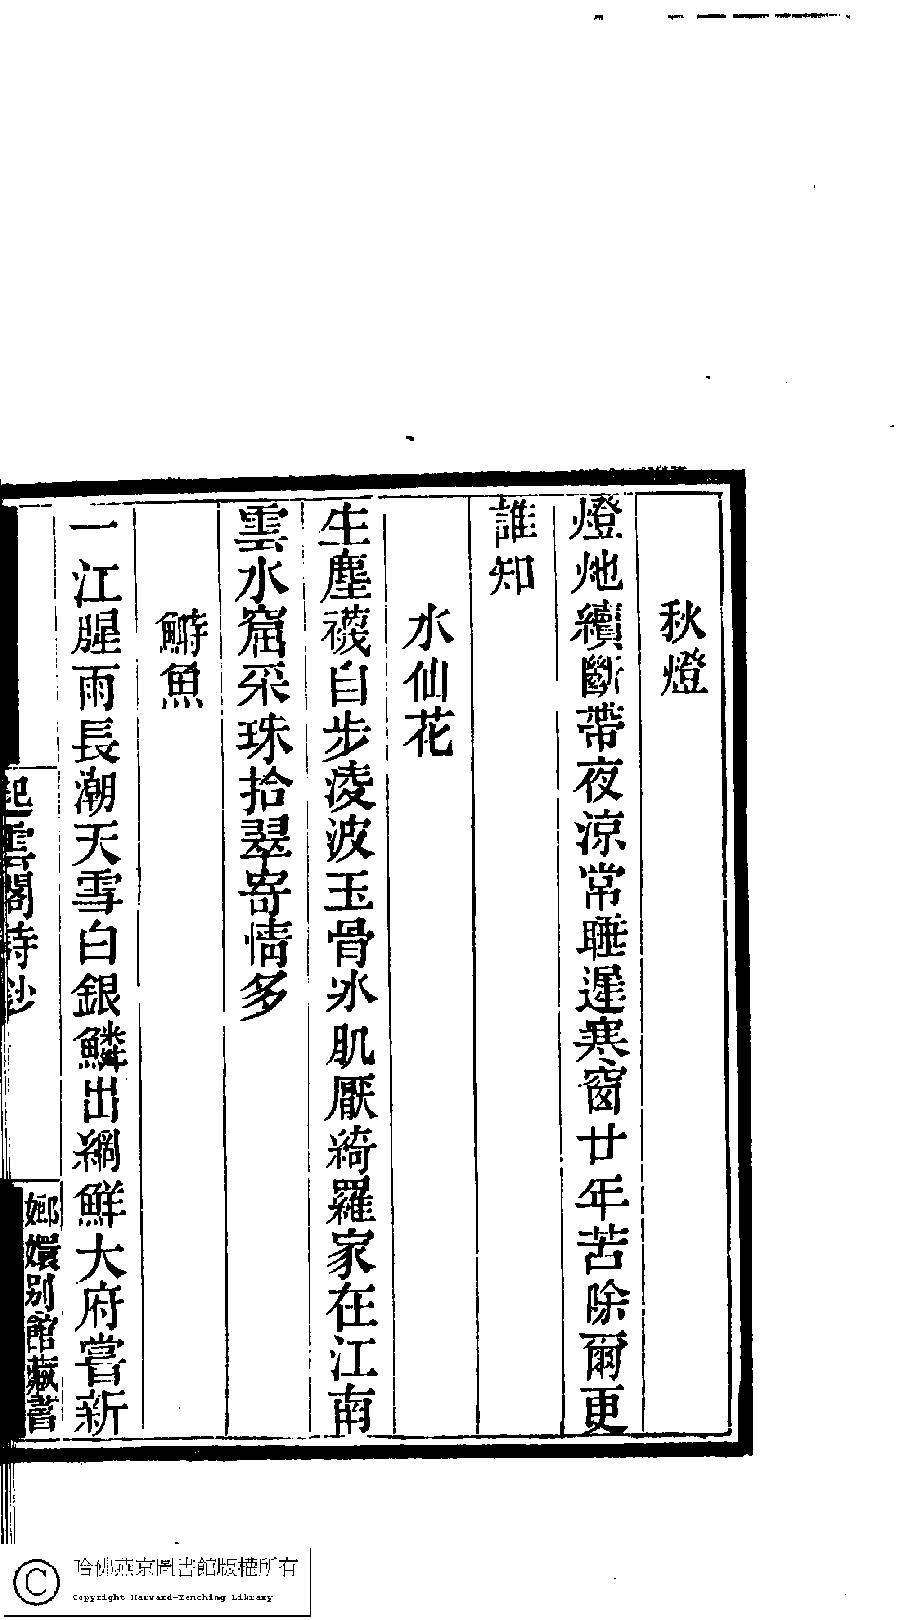 秋燈
燈灺續斷帶夜涼常睡遲寒窗廿年苦除爾更
誰知
水仙花
生塵襪自步淩波玉骨冰肌厭綺羅家在江南
雲水窟采珠拾翠寄情多
鰣魚
一江腥雨長潮天雪白銀鱗出網鮮大府嘗新
起雲閣詩鈔
嫏嬛別館藏書
哈佛燕京圖書館版權所有
Copyright Harvard-Yenching Library